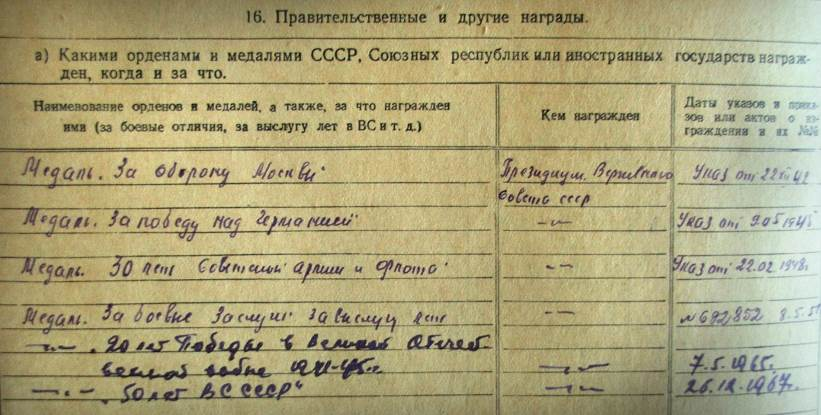 16. Правительственные и другие награды.
а) Какими орденами и медалями СССР, Союзных республик или иностранных государств награж-
ден, когда и за что.
Наименование орденов и медалей, а также, за что награжден
ими (за боевые отличия, за выслугу лет в ВС и т. д.)
Кем награжден
Даты указов и прика-
зов или актов о на-
граждении и их №№
Медаль. За оборону Москвы Президиум. Верховного
Совета ссср
Указ от 22
Медаль. За победу над Германией —"— Указ от 9 05 1945
Медаль. 30 лет Советской армии и флота —"— Указ от 22.02 1948г
Медаль. За боевые заслуги за выслугу лет —"— № 682852 8.5.
—"— "20 лет Победы в Великой Отечест
венной войне 1941-45г. —"— 7.5.1965г.
—"— "50 лет ВС СССР" —"— 26.12.1967г.